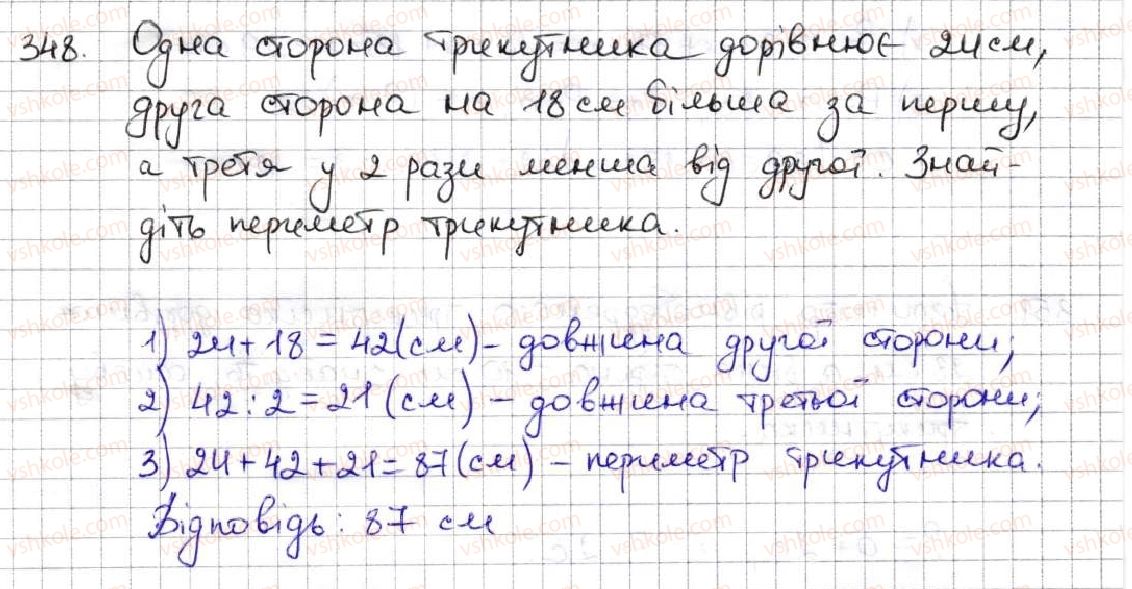 348. Одна сторона трикутника дорівнює 24 см,
друга сторона на 18 см більша за першу,
а третя у 2 рази менша від другої. Знай-
діть периметр трикутника.
1) 24 + 18 = 42 (см) - довжина другої сторони;
2) 42 : 2 = 21 (см) - довжина третьої сторони;
3) 24 + 42 + 21 = 87 (см) - периметр трикутника.
Відповідь: 87 см